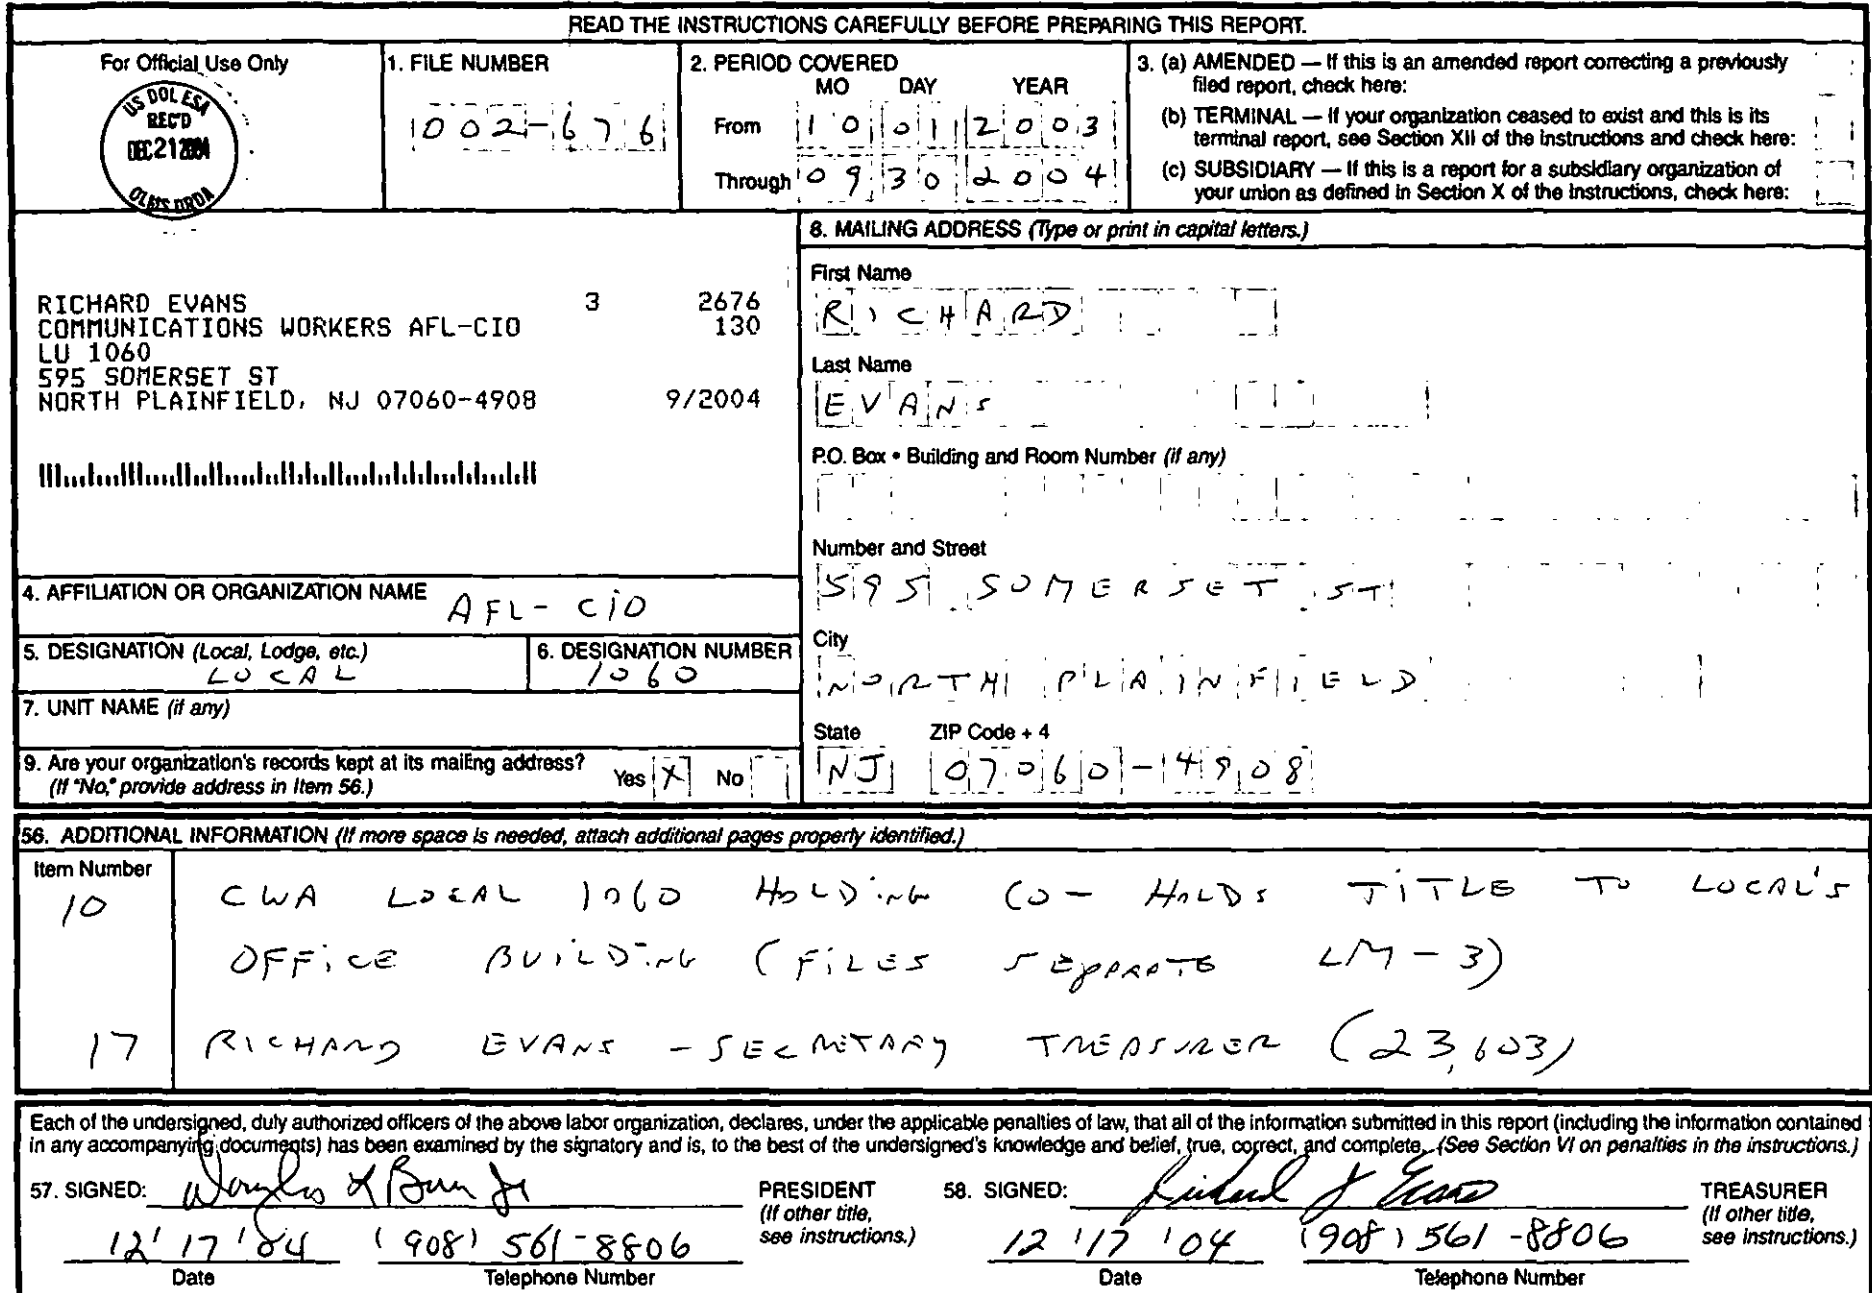 READ THE INSTRUCTIONS CAREFULLY BEFORE PREPARING THIS REPORT.
For Official Use Only
US DOL ESA
REC'D
DEC 21 2004
OLMS DRDA
1. FILE NUMBER
002-676
2. PERIOD COVERED
MO DAY YEAR
From 10 01 2003
Through 09 30 2004
3. (a) AMENDED — If this is an amended report correcting a previously
filed report, check here:
(b) TERMINAL — If your organization ceased to exist and this is its
terminal report, see Section XII of the instructions and check here:
(c) SUBSIDIARY — If this is a report for a subsidiary organization of
your union as defined in Section X of the instructions, check here:
RICHARD EVANS 3 2676
COMMUNICATIONS WORKERS AFL-CIO 130
LU 1060
595 SOMERSET ST
NORTH PLAINFIELD, NJ 07060-4908 9/2004
4. AFFILIATION OR ORGANIZATION NAME AFL-CIO
5. DESIGNATION (Local, Lodge, etc.)
LOCAL
6. DESIGNATION NUMBER
1060
7. UNIT NAME (if any)
9. Are your organization's records kept at its mailing address?
(If "No," provide address in Item 56.)
Yes X No
8. MAILING ADDRESS (Type or print in capital letters.)
First Name
RICHARD
Last Name
EVANS
P.O. Box • Building and Room Number (if any)
Number and Street
595 SOMERSET ST
City
NORTH PLAINFIELD
State ZIP Code + 4
NJ 07060-4908
56. ADDITIONAL INFORMATION (If more space is needed, attach additional pages properly identified.)
Item Number
10 CWA LOCAL 1060 HOLDING CO - HOLDS TITLE TO LOCAL'S
OFFICE BUILDING (FILES SEPARATE LM-3)
17 RICHARD EVANS - SECRETARY TREASURER (23,603)
Each of the undersigned, duly authorized officers of the above labor organization, declares, under the applicable penalties of law, that all of the information submitted in this report (including the information contained
in any accompanying documents) has been examined by the signatory and is, to the best of the undersigned's knowledge and belief, true, correct, and complete. (See Section VI on penalties in the instructions.)
57. SIGNED: PRESIDENT
(If other title,
see instructions.)
12 17 04 (908) 561-8806
Date Telephone Number
58. SIGNED: Richard J Evans TREASURER
(If other title,
see instructions.)
12 17 04 (908) 561-8806
Date Telephone Number